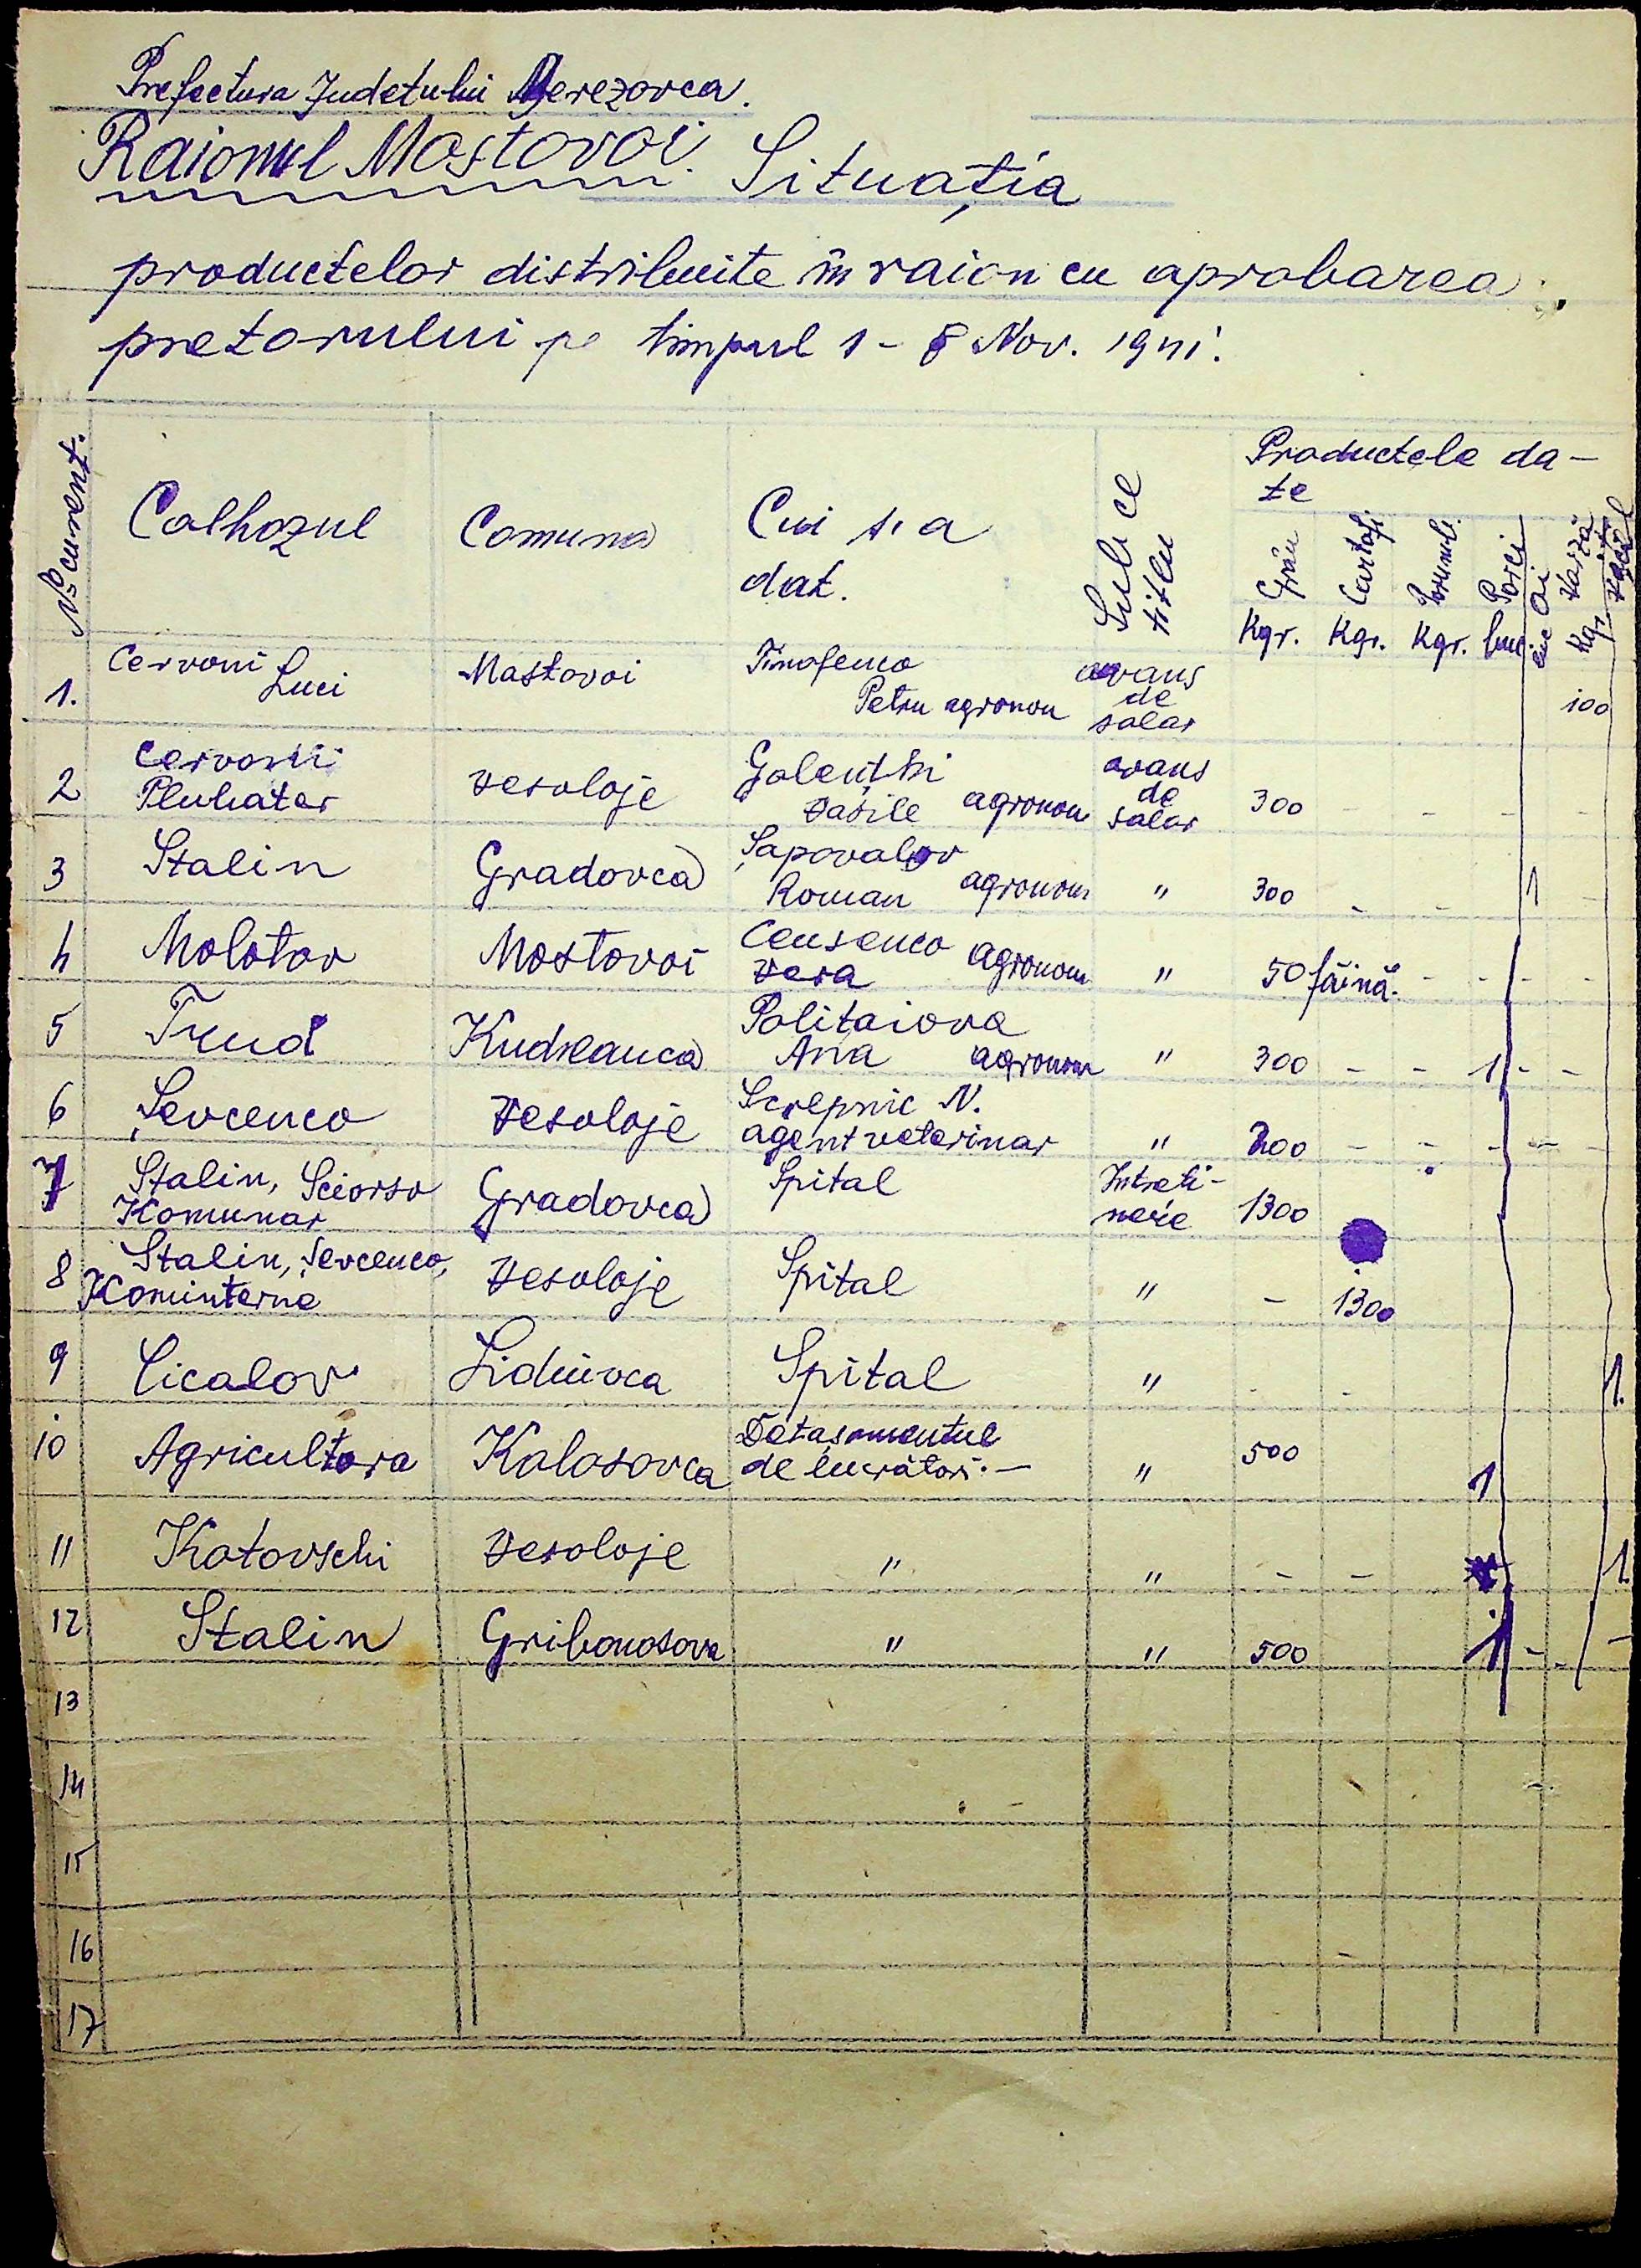 Prefectura Judetului Berezovca.
Raionul Mostovoi. Situația
productelor distribuite în raion cu aprobarea
pretorului pe timpul 1 - 8 Nov. 1941.
No curent. Colhozul Comuna Cui s'a dat. Sub ce titlu Productele date
Grâu Cartofi Porumb. Porci Oi Varză
Kgr. Kgr. Kgr. buc buc Kgr.
1. Cervoni Luci Mostovoi Timofenco Petru agronom avans de salar 100
2 Cervonii Pluhatar Vesoloje Golențki Vasile agronom avans de salar 300 - - - -
3 Stalin Gradovca Șapovalov Roman agronom " 300 - - 1 -
4 Molotov Mostovoi Censenco Vera agronom " 50 făină. - - - -
5 Trud Kudreauca Politaiova Ana agronom " 300 - - 1 - -
6 Șevcenco Vesoloje Screpnic N. agent veterinar " 200 - - - - -
7 Stalin, Sciorso Komunar Gradovca Spital Intreti-nere 1300
8 Stalin, Șevcenco, Kominterne Vesoloje Spital " - 1300
9 Cicalov Lidiievca Spital " - - 1.
10 Agricultora Kolosovca Detașamentul de lucrători. - " 500 1
11 Kotovschi Vesoloje " " - - 1.
12 Stalin Gribonosova " " 500 1 - - -
13
14
15
16
17